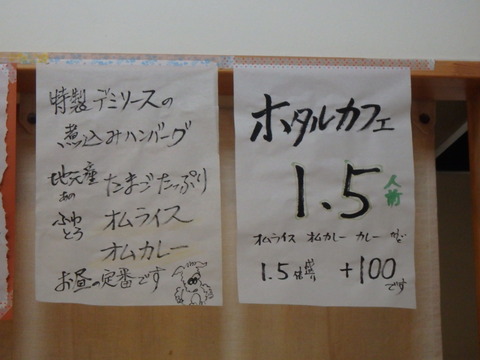 特製デミソースの
煮込みハンバーグ
地元産の たまごたっぷり
ふわとろ オムライス
オムカレー
お昼の定番です
ホタルカフェ
1.5人前
オムライス オムカレー カレー など
1.5倍盛り +100です